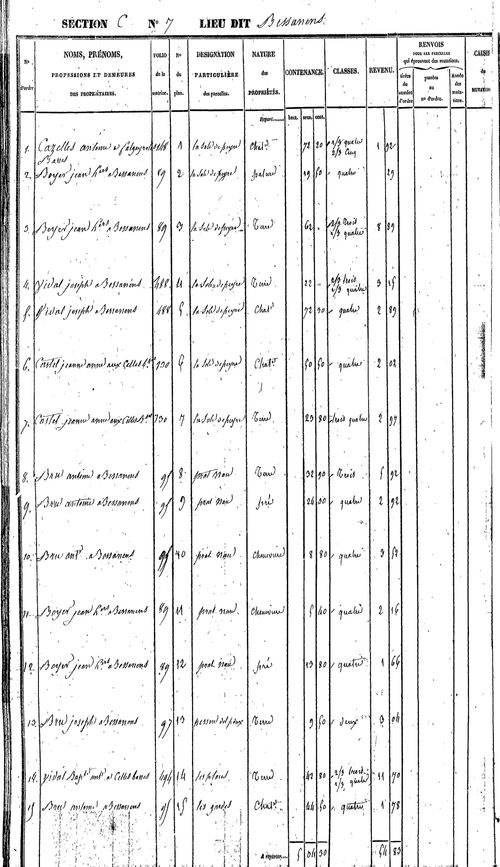 SECTION C N° 7 LIEU DIT Bessanens
N° d'ordre
NOMS, PRÉNOMS, PROFESSIONS ET DEMEURES DES PROPRIÉTAIRES.
FOLIO de la matrice.
N° du plan.
DESIGNATION PARTICULIÈRE des parcelles.
NATURE des PROPRIÉTÉS.
CONTENANCE.
CLASSES.
REVENU.
RENVOIS
POUR LES PARCELLES
qui éprouvent des mutations.
CAUSES de MUTATION
Report.....
1. Cazelles antoine a 1 la Sol de peyre Chat. 72 20 1 92
Basses
2. Boyer jean h.ers a Bessanens 89 2 la Sol de peyre pature 19 50 quatre 29
3. Boyer jean h.ers a Bessanens 89 3 la Sol de peyre Terre 62 2/3 trois 1/3 quatre 8 89
4. Vidal joseph a Bessanens 488 4 la Sol de peyre Terre 22 2/3 trois 1/3 quatre 3 15
5. Vidal joseph a Bessanens 488 5 la Sol de peyre Chat. 72 30 quatre 2 89
6. Castel jeanne anne aux Celles 730 6 la Sol de peyre Chat. 50 50 quatre 2 02
7. Castel jeanne anne aux Celles 730 7 la Sol de peyre Terre 23 80 trois quatre 2 97
8. Bru antoine a Bessanens 95 8 prat nau Terre 32 90 Trois 5 92
9. Bru antoine a Bessanens 95 9 prat nau pré 26 30 quatre 2 92
10. Bru ant. a Bessanens 95 10 prat nau cheneviere 8 80 quatre 3 52
11. Boyer jean h.ers a Bessanens 89 11 prat nau cheneviere 5 40 quatre 2 16
12. Boyer jean h.ers a Bessanens 89 12 prat nau pré 13 80 quatre 1 66
13. Bru joseph a Bessanens 97 13 Terre 9 50 deux 3 04
14. Vidal Bap. ant. a Celles basses 494 14 les plous Terre 42 80 2/3 trois 1/3 quatre 11 70
15. Bru antoine a Bessanens 95 15 les gardes Chat. 44 50 quatre 1 78
A reporter..... 5 04 30 54 83